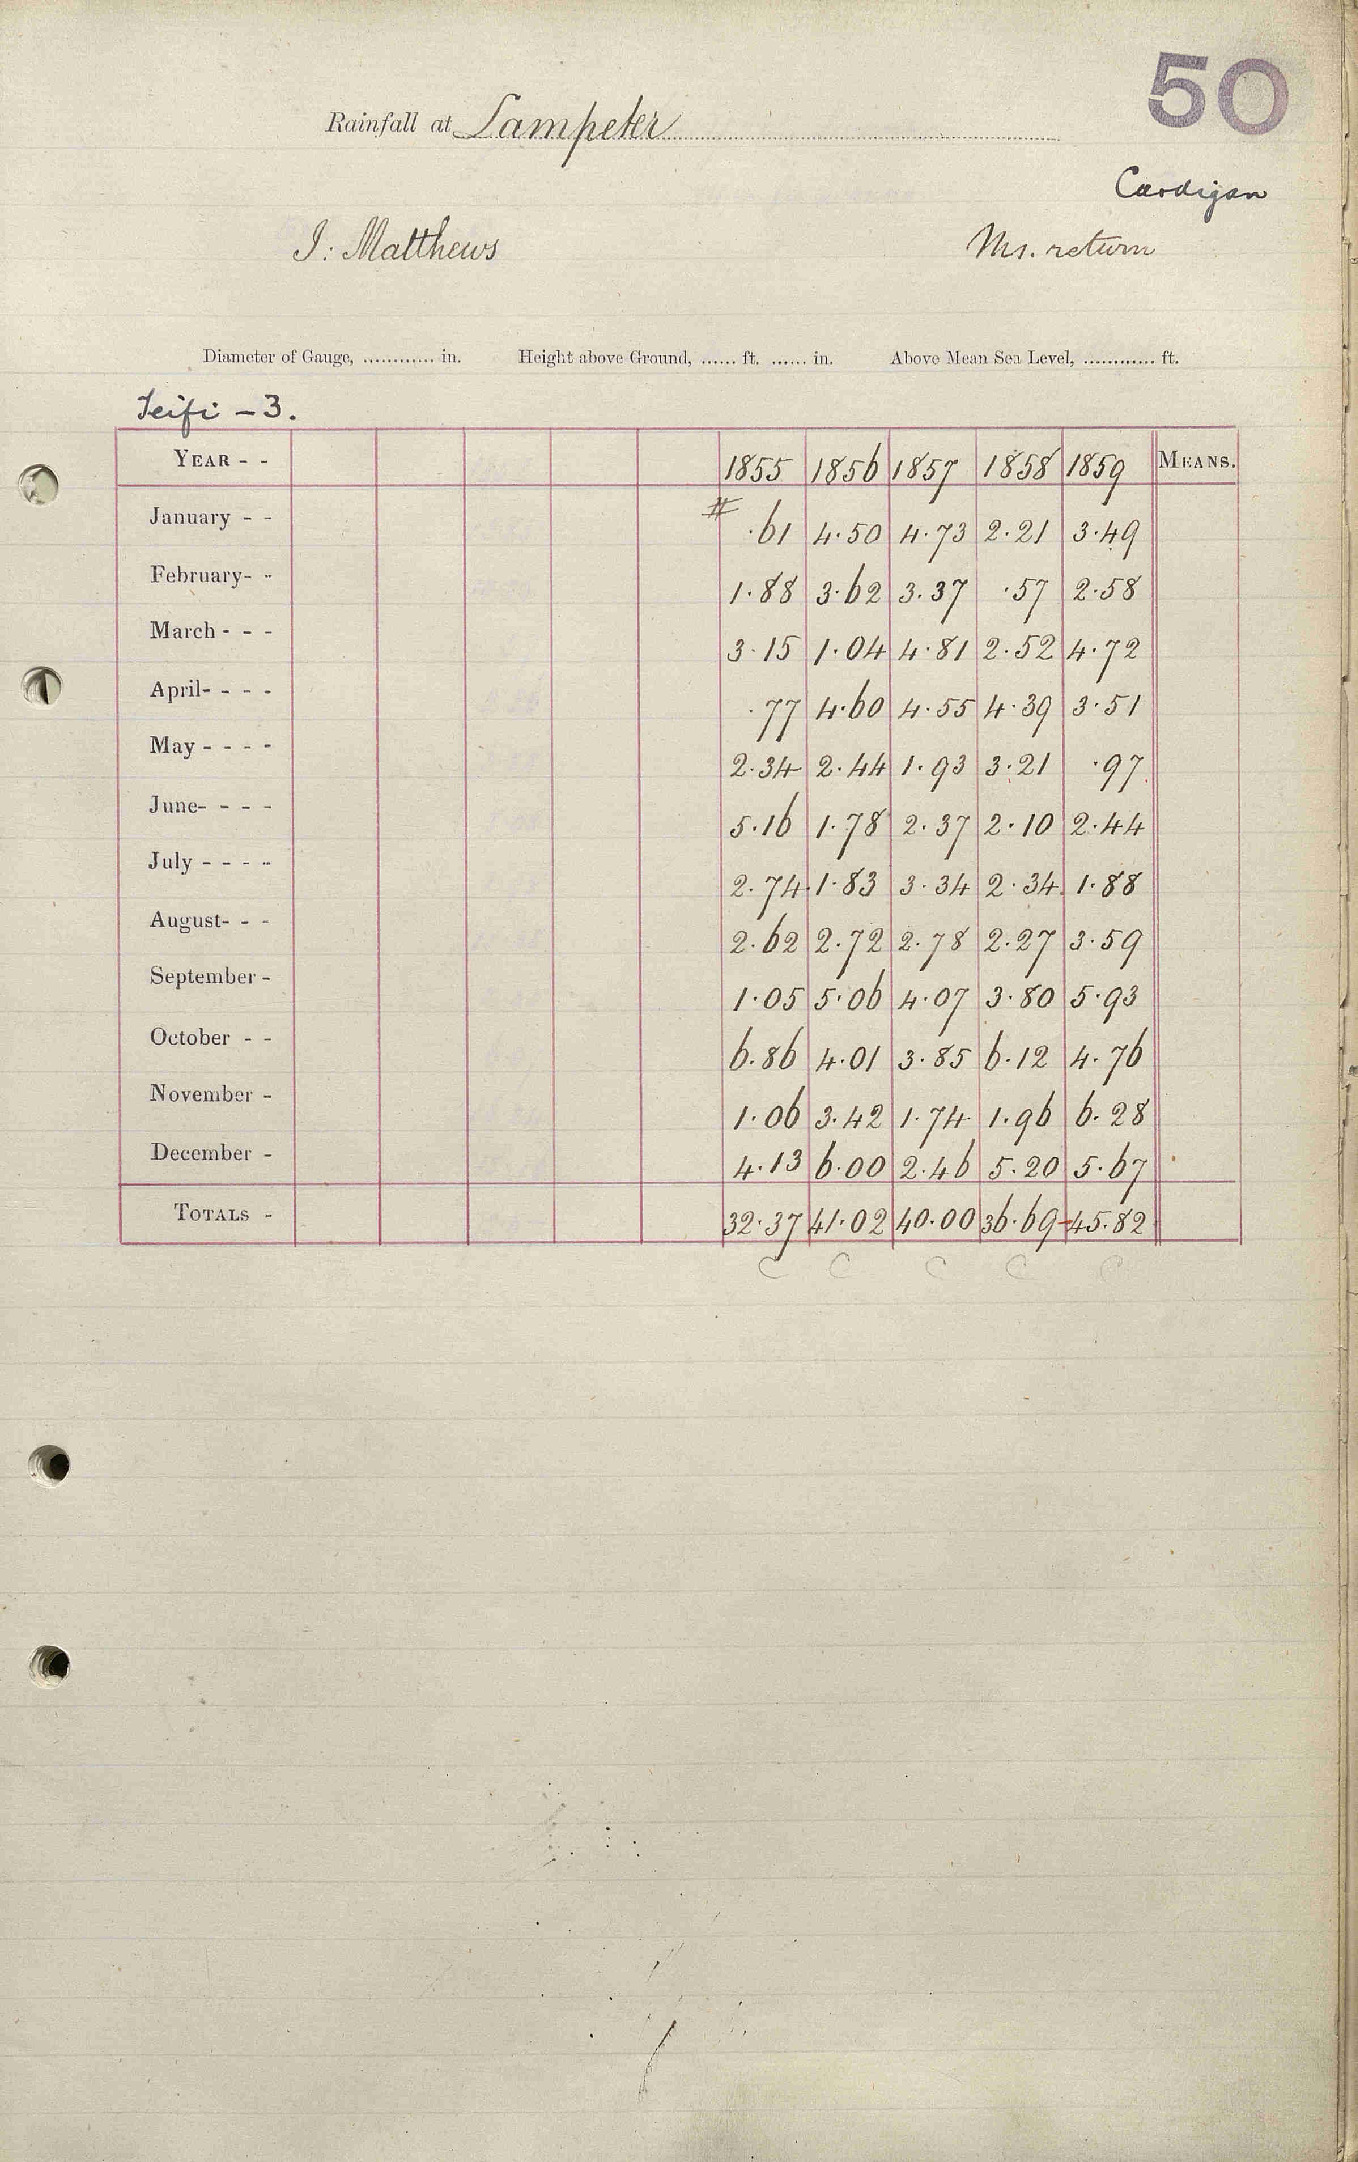 50
Rainfall at Lampeter
Cardigan
I: Matthews Ms. return
Diameter of Gauge, ............ in. Height above Ground, ...... ft. ...... in. Above Mean Sea Level, ............ ft.
Teifi - 3.
YEAR - - 1855 1856 1857 1858 1859 MEANS.
January - - # .61 4.50 4.73 2.21 3.49
February - - 1.88 3.62 3.37 .57 2.58
March - - - 3.15 1.04 4.81 2.52 4.72
April - - - - .77 4.60 4.55 4.39 3.51
May - - - - 2.34 2.44 1.93 3.21 .97
June - - - - 5.16 1.78 2.37 2.10 2.44
July - - - - 2.74 1.83 3.34 2.34 1.88
August - - - 2.62 2.72 2.78 2.27 3.59
September - 1.05 5.06 4.07 3.80 5.93
October - - 6.86 4.01 3.85 6.12 4.76
November - 1.06 3.42 1.74 1.96 6.28
December - 4.13 6.00 2.46 5.20 5.67
TOTALS - 32.37 41.02 40.00 36.69 45.82
C C C C C